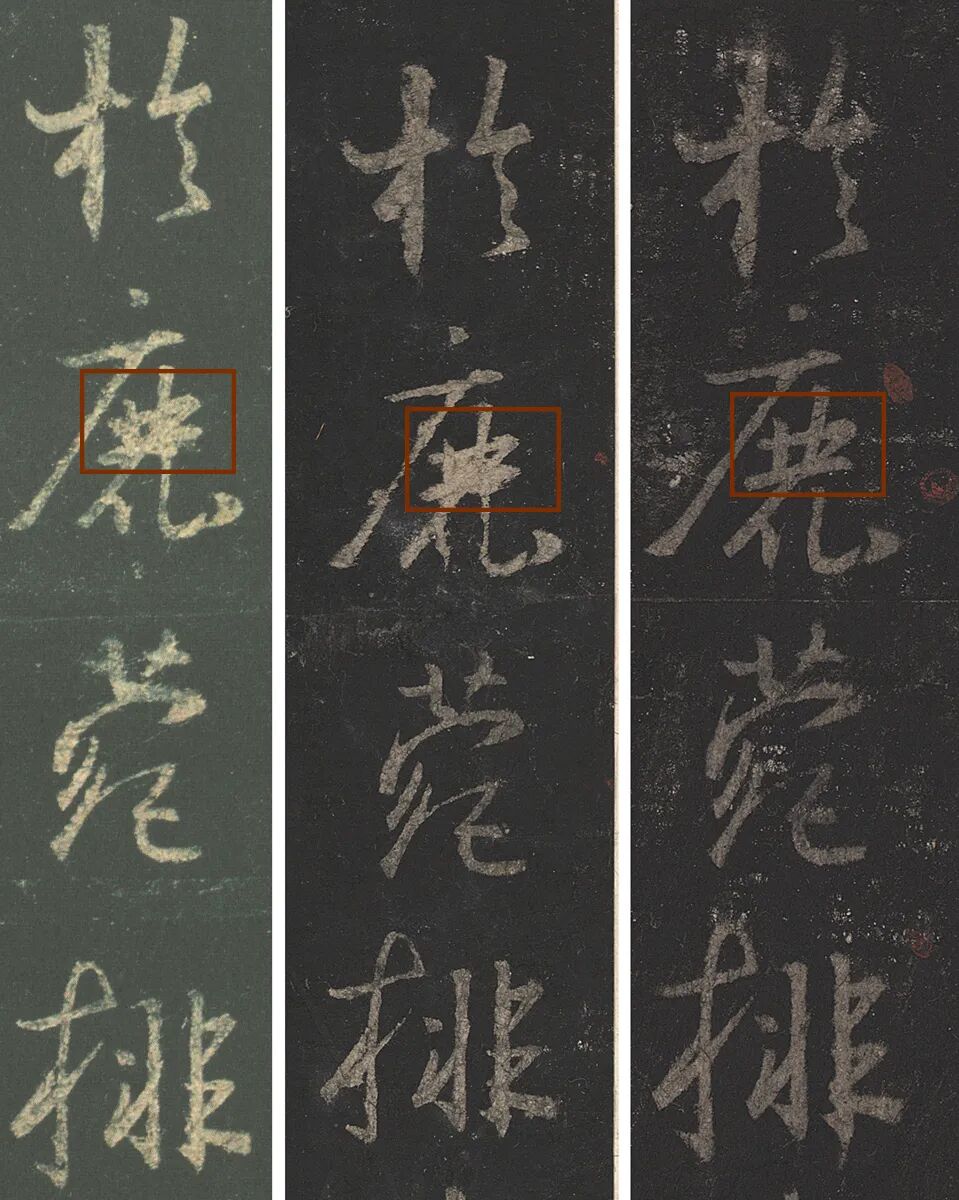 於鹿苑排
於鹿苑排
於鹿苑排